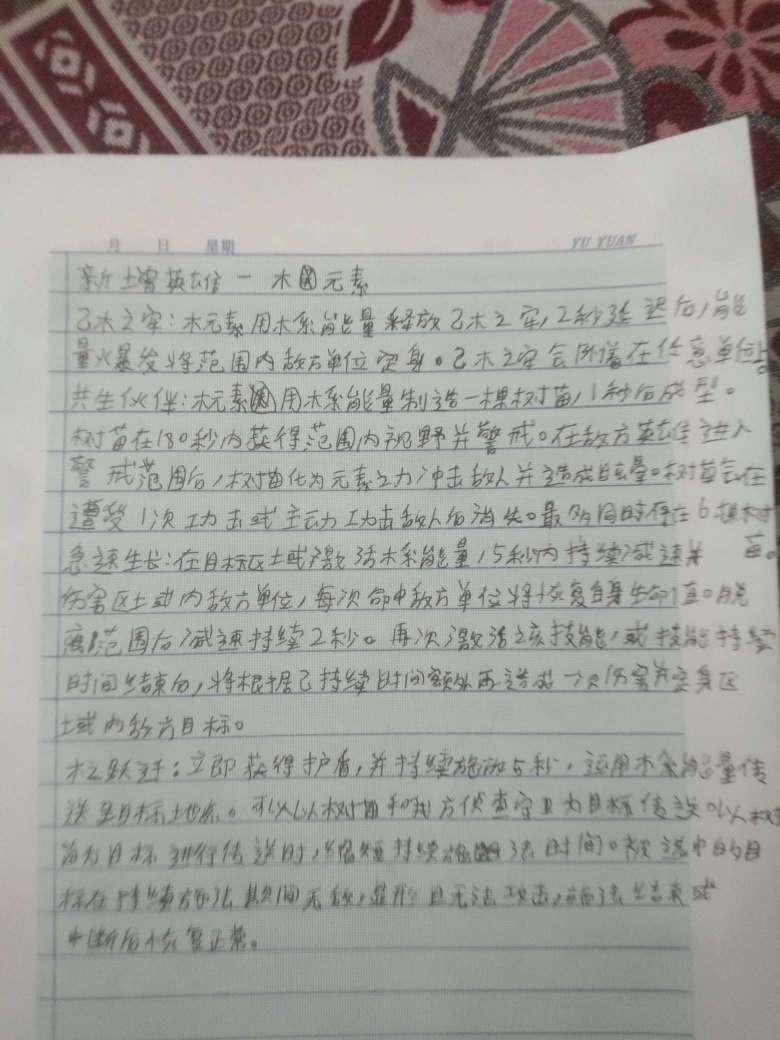 月 日 星期 YU YUAN
新增英雄一 木元素
乙木之牢:木元素用木系能量释放乙木之牢,2秒延迟后,能
量爆发将范围内敌方单位定身。乙木之牢会附着在任意单位上。
共生伙伴:木元素用木系能量制造一棵树苗,1秒后成型。
树苗在180秒内获得范围内视野并警戒。在敌方英雄进入
警戒范围后,树苗化为元素之力冲击敌人并造成眩晕。树苗会在
遭受1次攻击或主动攻击敌人后消失。最多同时存在6棵树
苗。
急速生长:在目标区域激活木系能量,5秒内持续减速并
伤害区域内敌方单位,每次命中敌方单位将恢复自身生命值。脱
离范围后减速持续2秒。再次激活该技能,或技能持续
时间结束后,将根据已持续时间额外再造成一次伤害并定身区
域内敌方目标。
木之跃迁:立即获得护盾,并持续施法5秒,运用木系能量传
送至目标地点。可以以树苗和我方侦查守卫为目标传送。以树
苗为目标进行传送时,缩短持续施法时间。被选中的目
标在持续施法期间无敌,显形且无法攻击,施法结束或
中断后恢复正常。